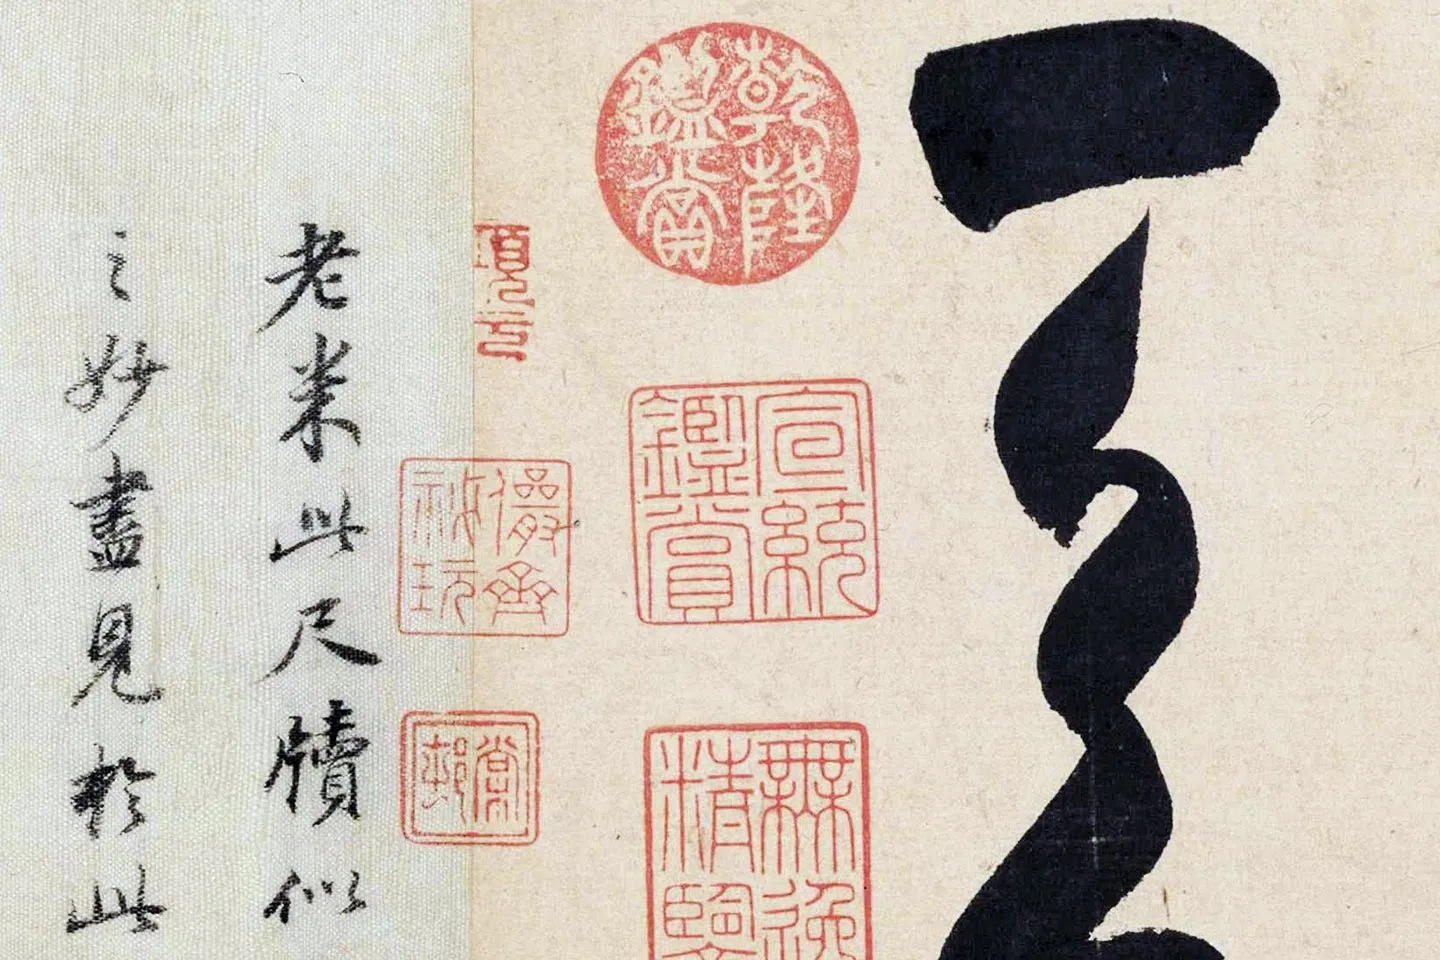 乾隆鑑賞
宣統鑑賞
無逸
精鑒
儼齋秘玩
老米此尺牘似
之妙盡見於此